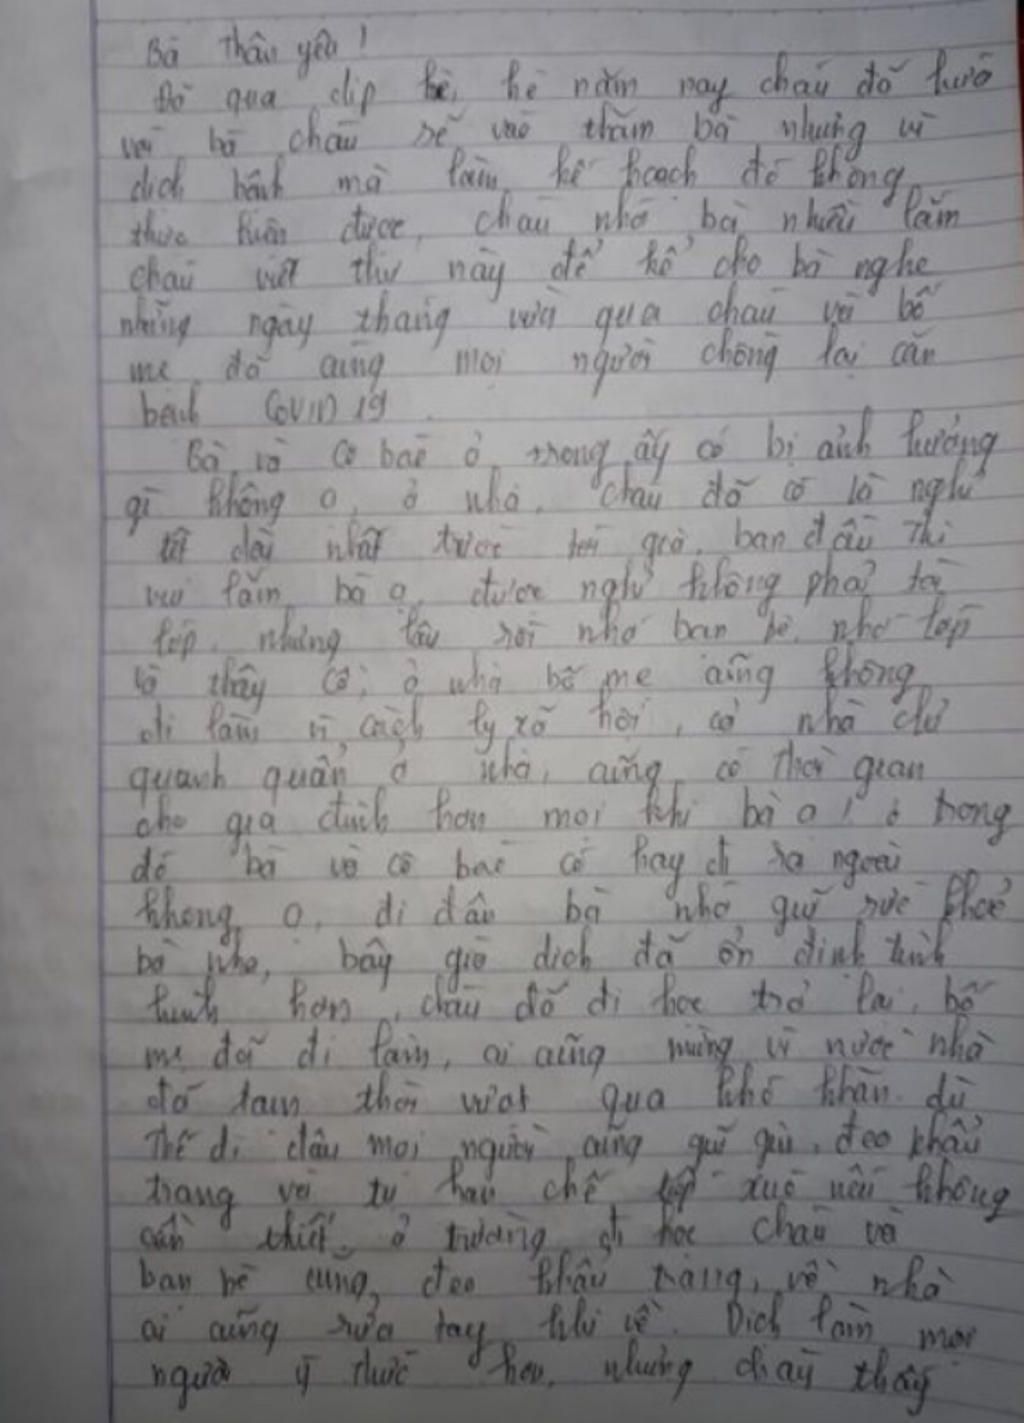 Bà thân yêu!
Đã qua dịp hè, hè năm nay cháu đã hứa
với bà cháu sẽ vào thăm bà nhưng vì
dịch bệnh mà làm kế hoạch đó không
thực hiện được, cháu nhớ bà nhiều lắm
cháu viết thư này để kể cho bà nghe
những ngày tháng vừa qua cháu và bố
mẹ đã cũng mọi người chống lại căn
bệnh COVID 19.
Bà và cô bác ở trong ấy có bị ảnh hưởng
gì không ạ, ở nhà, cháu đã có kì nghỉ
tết dài nhất trước tới giờ, ban đầu thì
vui lắm bà ạ, được nghỉ không phải tới
lớp, nhưng lâu rồi nhớ bạn bè, nhớ lớp
và thầy cô, ở nhà bố mẹ cũng không
đi làm vì cách ly xã hội, cả nhà chỉ
quanh quẩn ở nhà, cũng có thời gian
cho gia đình hơn mọi khi bà ạ! ở trong
đó bà và cô bác có hay đi ra ngoài
không ạ, đi đâu bà nhớ giữ sức khoẻ
bà nha, bây giờ dịch đã ổn định tình
hình hơn, cháu đã đi học trở lại, bố
mẹ đã đi làm, ai cũng mừng vì nước nhà
đã tạm thời vượt qua khó khăn. dù
thế đi đâu mọi người cũng giữ gìn, đeo khẩu
trang và tự hạn chế tiếp xúc nếu không
cần thiết, ở trường đi học cháu và
bạn bè cũng đeo khẩu trang, về nhà
ai cũng rửa tay khi về. Dịch làm mọi
người ý thức hơn, nhưng cháu thấy